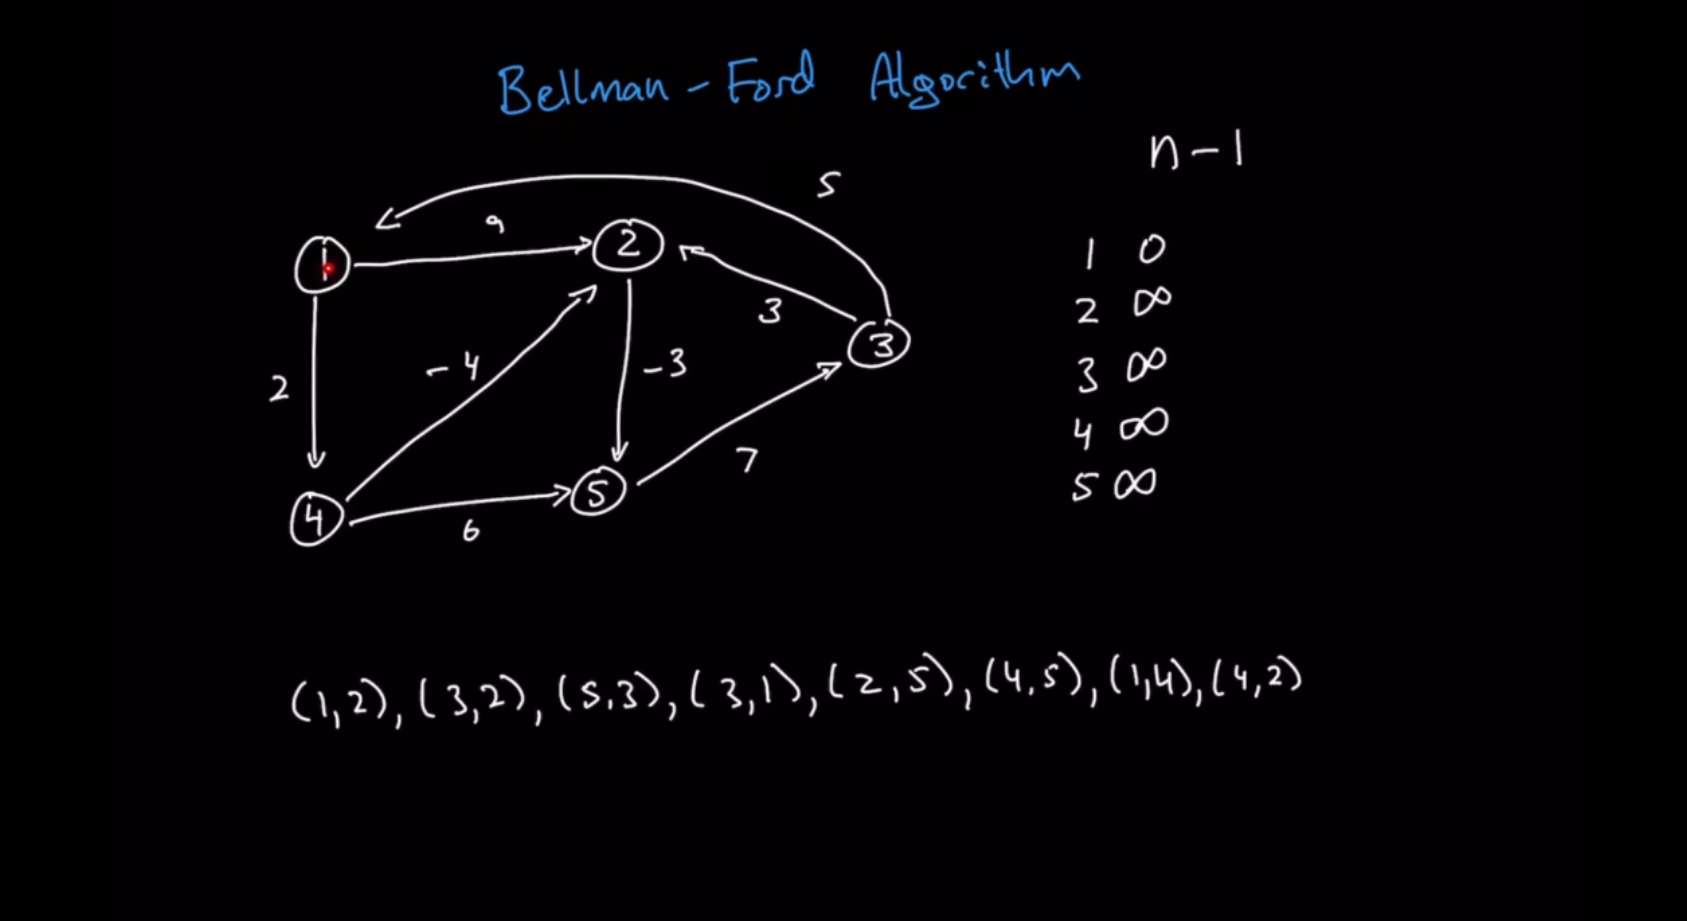 Bellman - Ford Algorithm
n - 1
5
9
1
2
3
3
2
-4
-3
7
4
5
6
1 0
2 ∞
3 ∞
4 ∞
5 ∞
(1,2), (3,2), (5,3), (3,1), (2,5), (4,5), (1,4), (4,2)